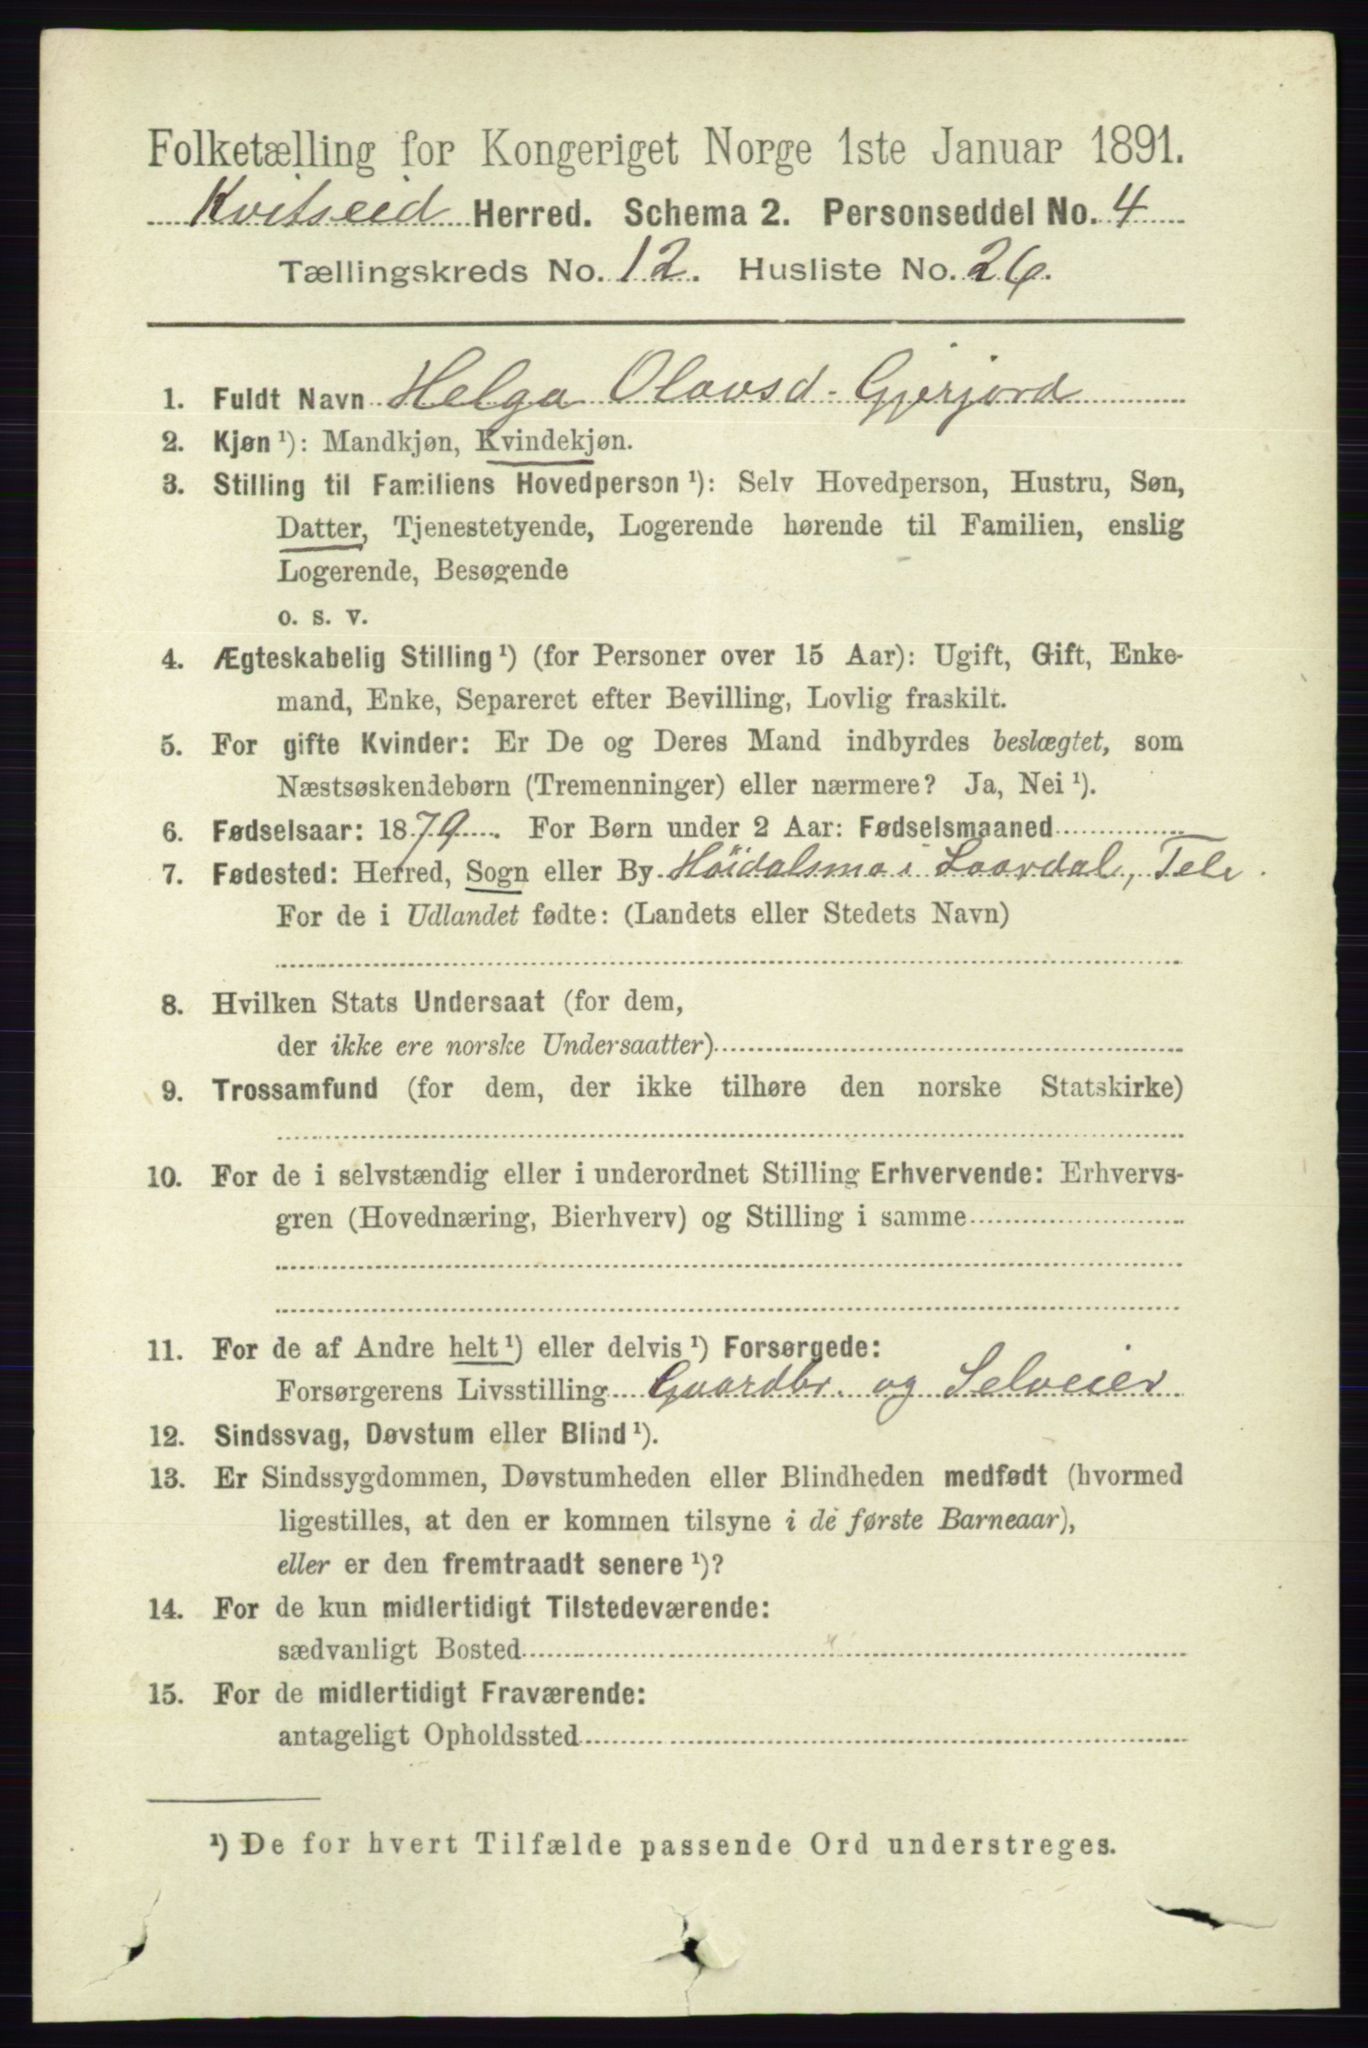 Folketælling for Kongeriget Norge 1ste Januar 1891.
Kvitseid Herred. Schema 2. Personseddel No. 4
Tællingskreds No. 12. Husliste No. 26.
1. Fuldt Navn Helga Olavsd. Gjerjord
2. Kjøn ¹): Mandkjøn, Kvindekjøn.
3. Stilling til Familiens Hovedperson ¹): Selv Hovedperson, Hustru, Søn,
Datter, Tjenestetyende, Logerende hørende til Familien, enslig
Logerende, Besøgende
o. s. v.
4. Ægteskabelig Stilling ¹) (for Personer over 15 Aar): Ugift, Gift, Enke-
mand, Enke, Separeret efter Bevilling, Lovlig fraskilt.
5. For gifte Kvinder: Er De og Deres Mand indbyrdes beslægtet, som
Næstsøskendebørn (Tremenninger) eller nærmere? Ja, Nei ¹).
6. Fødselsaar: 1879. For Børn under 2 Aar: Fødselsmaaned
7. Fødested: Herred, Sogn eller By Høidalsmo i Laardal, Tele.
For de i Udlandet fødte: (Landets eller Stedets Navn)
8. Hvilken Stats Undersaat (for dem,
der ikke ere norske Undersaatter)
9. Trossamfund (for dem, der ikke tilhøre den norske Statskirke)
10. For de i selvstændig eller i underordnet Stilling Erhvervende: Erhvervs-
gren (Hovednæring, Bierhverv) og Stilling i samme
11. For de af Andre helt ¹) eller delvis ¹) Forsørgede:
Forsørgerens Livsstilling Gaardbr. og Selveier
12. Sindssvag, Døvstum eller Blind ¹).
13. Er Sindssygdommen, Døvstumheden eller Blindheden medfødt (hvormed
ligestilles, at den er kommen tilsyne i de første Barneaar),
eller er den fremtraadt senere ¹)?
14. For de kun midlertidigt Tilstedeværende:
sædvanligt Bosted
15. For de midlertidigt Fraværende:
antageligt Opholdssted
¹) De for hvert Tilfælde passende Ord understreges.